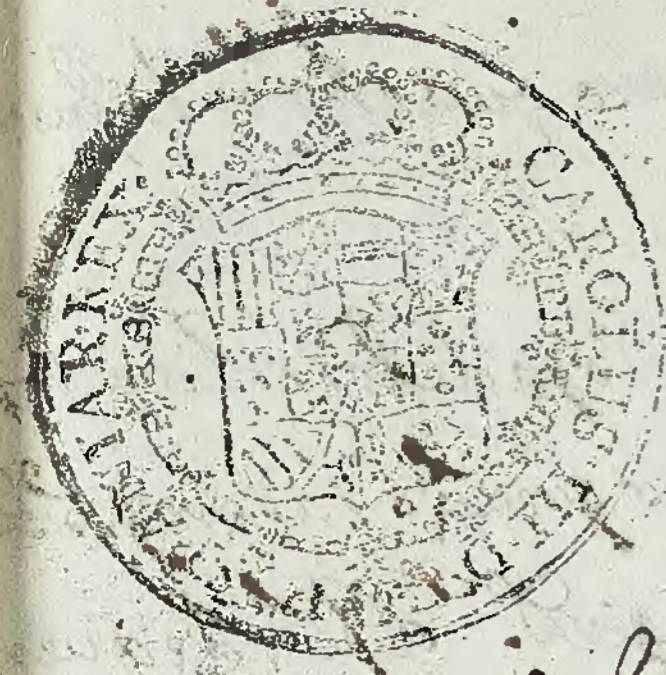 CAROLUS. D. G. HISPANIAR REX.